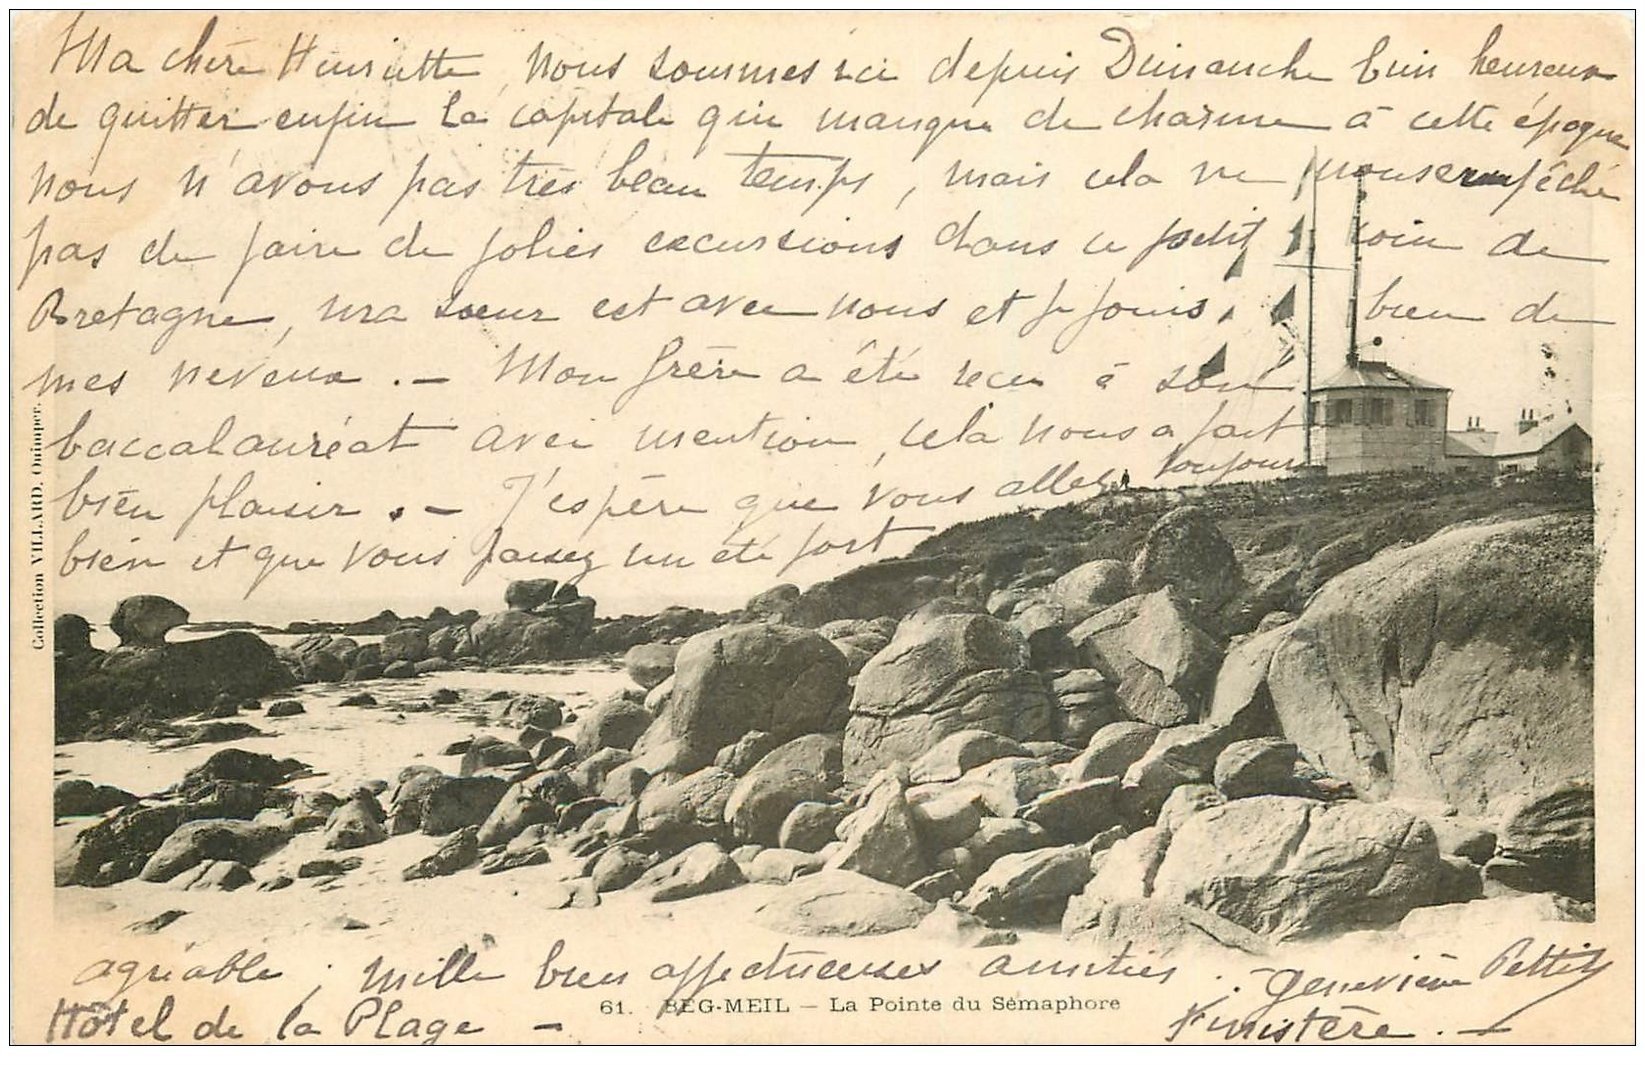 Ma chère Henriette, nous sommes ici depuis Dimanche bien heureux
de quitter enfin la capitale qui manque de charme à cette époque
nous n'avons pas très beau temps, mais cela ne nous empêche
pas de faire de jolies excursions dans ce petit coin de
Bretagne, ma sœur est avec nous et je jouis bien de
mes neveux. — Mon frère a été reçu à son
baccalauréat avec mention, cela nous a fait
bien plaisir. — J'espère que vous allez toujours
bien et que vous passez un été fort
agréable ; mille bien affectueuses amitiés. — Geneviève
Hôtel de la Plage — Finistère. —
61. BEG-MEIL — La Pointe du Sémaphore
Collection VILLARD, Quimper.